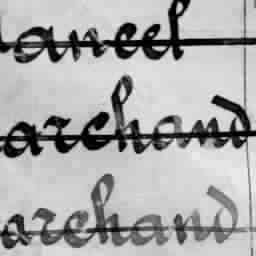 ancel
archand
archand